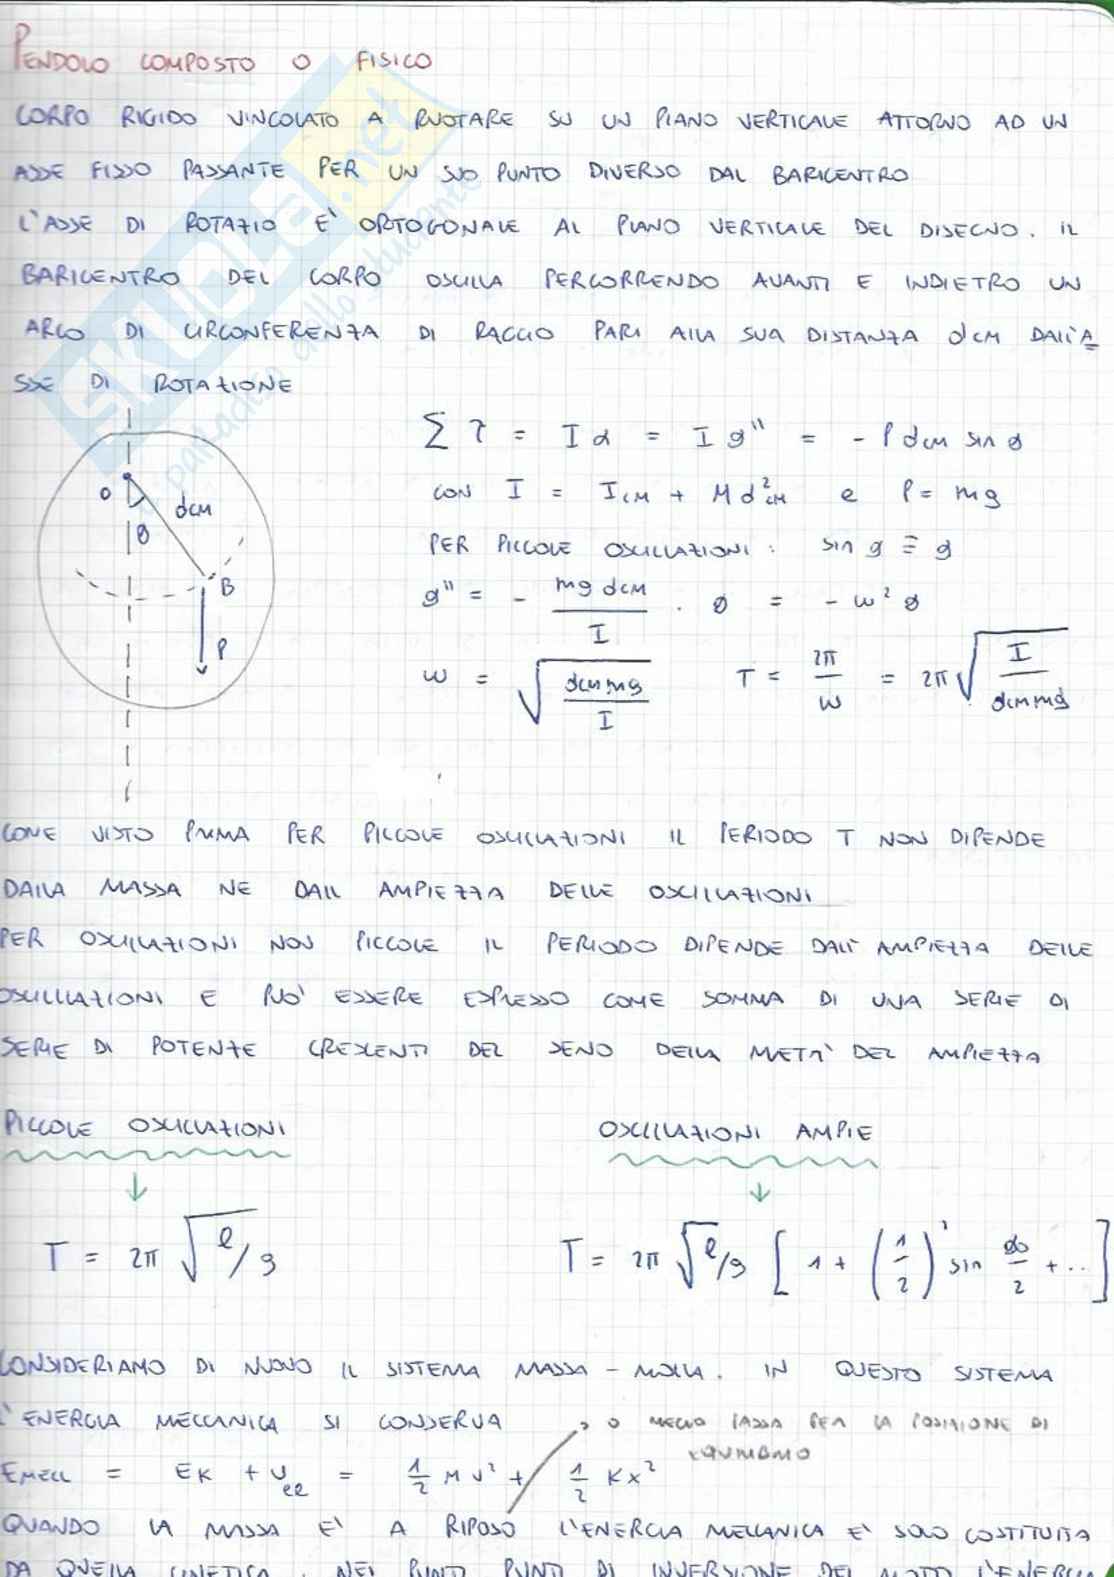 PENDOLO COMPOSTO O FISICO
CORPO RIGIDO VINCOLATO A RUOTARE SU UN PIANO VERTICALE ATTORNO AD UN
ASSE FISSO PASSANTE PER UN SUO PUNTO DIVERSO DAL BARICENTRO
L'ASSE DI ROTAZIO E' ORTOGONALE AL PIANO VERTICALE DEL DISEGNO. IL
BARICENTRO DEL CORPO OSCILLA PERCORRENDO AVANTI E INDIETRO UN
ARCO DI CIRCONFERENZA DI RAGGIO PARI ALLA SUA DISTANZA dCM DALL'A
SSE DI ROTAZIONE
SKUOLA.net
paradiso dello studente
Σ τ = I α = I θ'' = - P dCM sin θ
CON I = ICM + M d²CM e P = mg
PER PICCOLE OSCILLAZIONI: sin θ ≡ θ
θ'' = - mg dCM / I · θ = - ω² θ
ω = √(dCM mg / I) T = 2π/ω = 2π √(I / dCM mg)
O
dCM
θ
B
P
COME VISTO PRIMA PER PICCOLE OSCILLAZIONI IL PERIODO T NON DIPENDE
DALLA MASSA NE DALL AMPIEZZA DELLE OSCILLAZIONI
PER OSCILLAZIONI NON PICCOLE IL PERIODO DIPENDE DALL' AMPIEZZA DELLE
OSCILLLAZIONI E PUO' ESSERE ESPRESSO COME SOMMA DI UNA SERIE DI
SERIE DI POTENZE CRESCENTI DEL SENO DELLA META' DEL AMPIEZZA
PICCOLE OSCILLAZIONI
OSCILLAZIONI AMPIE
T = 2π √l/g
T = 2π √l/g [ 1 + (1/2)² sin θ0/2 + .. ]
CONSIDERIAMO DI NUOVO IL SISTEMA MASSA - MOLLA. IN QUESTO SISTEMA
L'ENERGIA MECCANICA SI CONSERVA
O MEGLIO PASSA PER LA POSIZIONE DI
EQUILIBRIO
EMECC = EK + Uel = 1/2 M v² + 1/2 K x²
QUANDO LA MASSA E' A RIPOSO L'ENERGIA MECCANICA E' SOLO COSTITUITA
DA QUELLA CINETICA. NEI PUNTI PUNTI DI INVERSIONE DEL MOTO L'ENERGIA